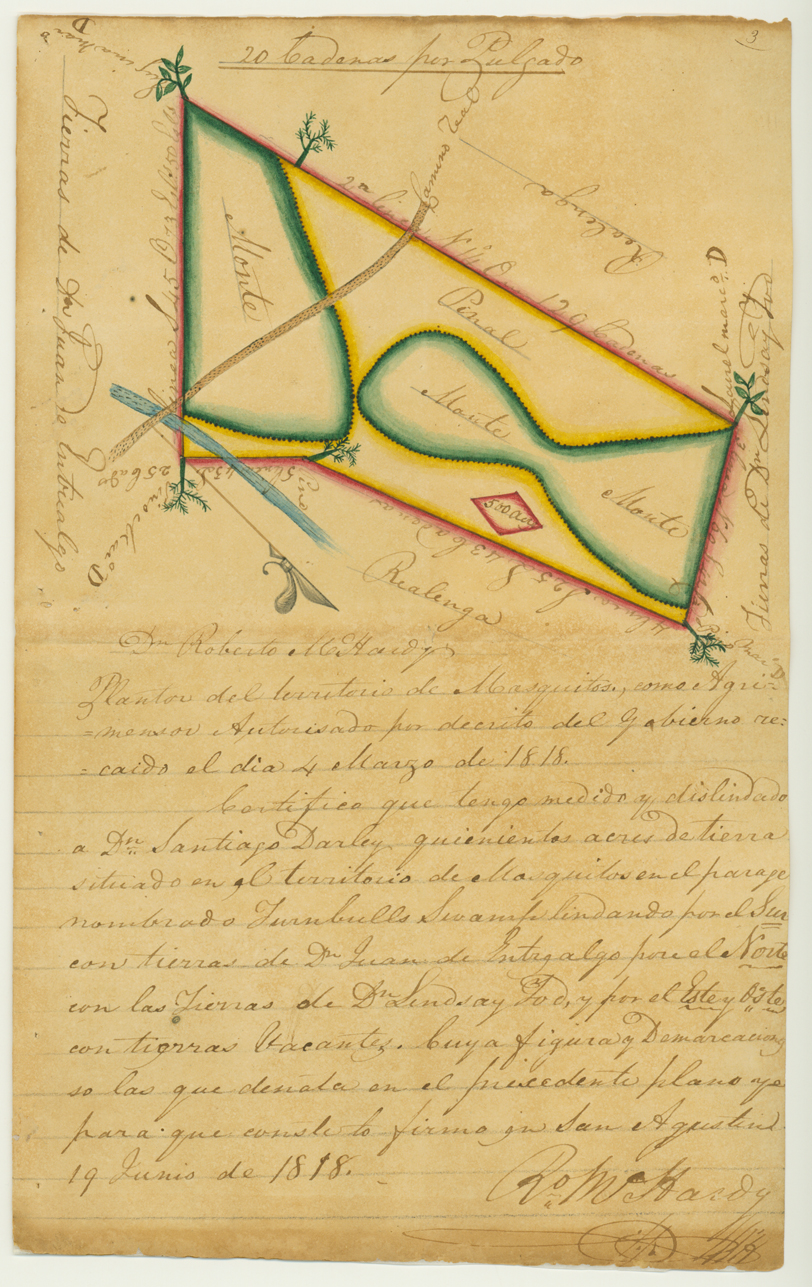 3
20 Cadenas por Pulgado
D
Tierras de Dn Juan de Entralgo
Camino Real
Realenga
2a linea N 40 O 126 Cadenas
Monte
Pinal
Monte
Monte
500 acs
Laurel marco D
Tierras de Dn Lindsay Tod
25 Cads
D
Pino
Realenga
S 43 Cadenas
marca D
Dn Roberto McHardy
Plantor del territorio de Mosquitos, como Agri-
=mensor Autorisado por decrito del Gobierno re=
=caido el dia 4 Marzo de 1818.
Certifico que tengo medido y dislindado
a Dn Santiago Darley quienientos acres de tierra
situado en el territorio de Mosquitos en el parage
nombrado Turnbulls Swamp lindando por el Sur
con tierras de Dn Juan de Entrgalgo por el Norte
con las Tierras de Dn Lindsay Tod, y por el Este y Oste
con tierras Vacantes. Cuya figura y Demarcacion
so las que denota en el precedente plano ye
para que conste lo firmo en San Agustin
19 Junio de 1818.
Ro McHardy